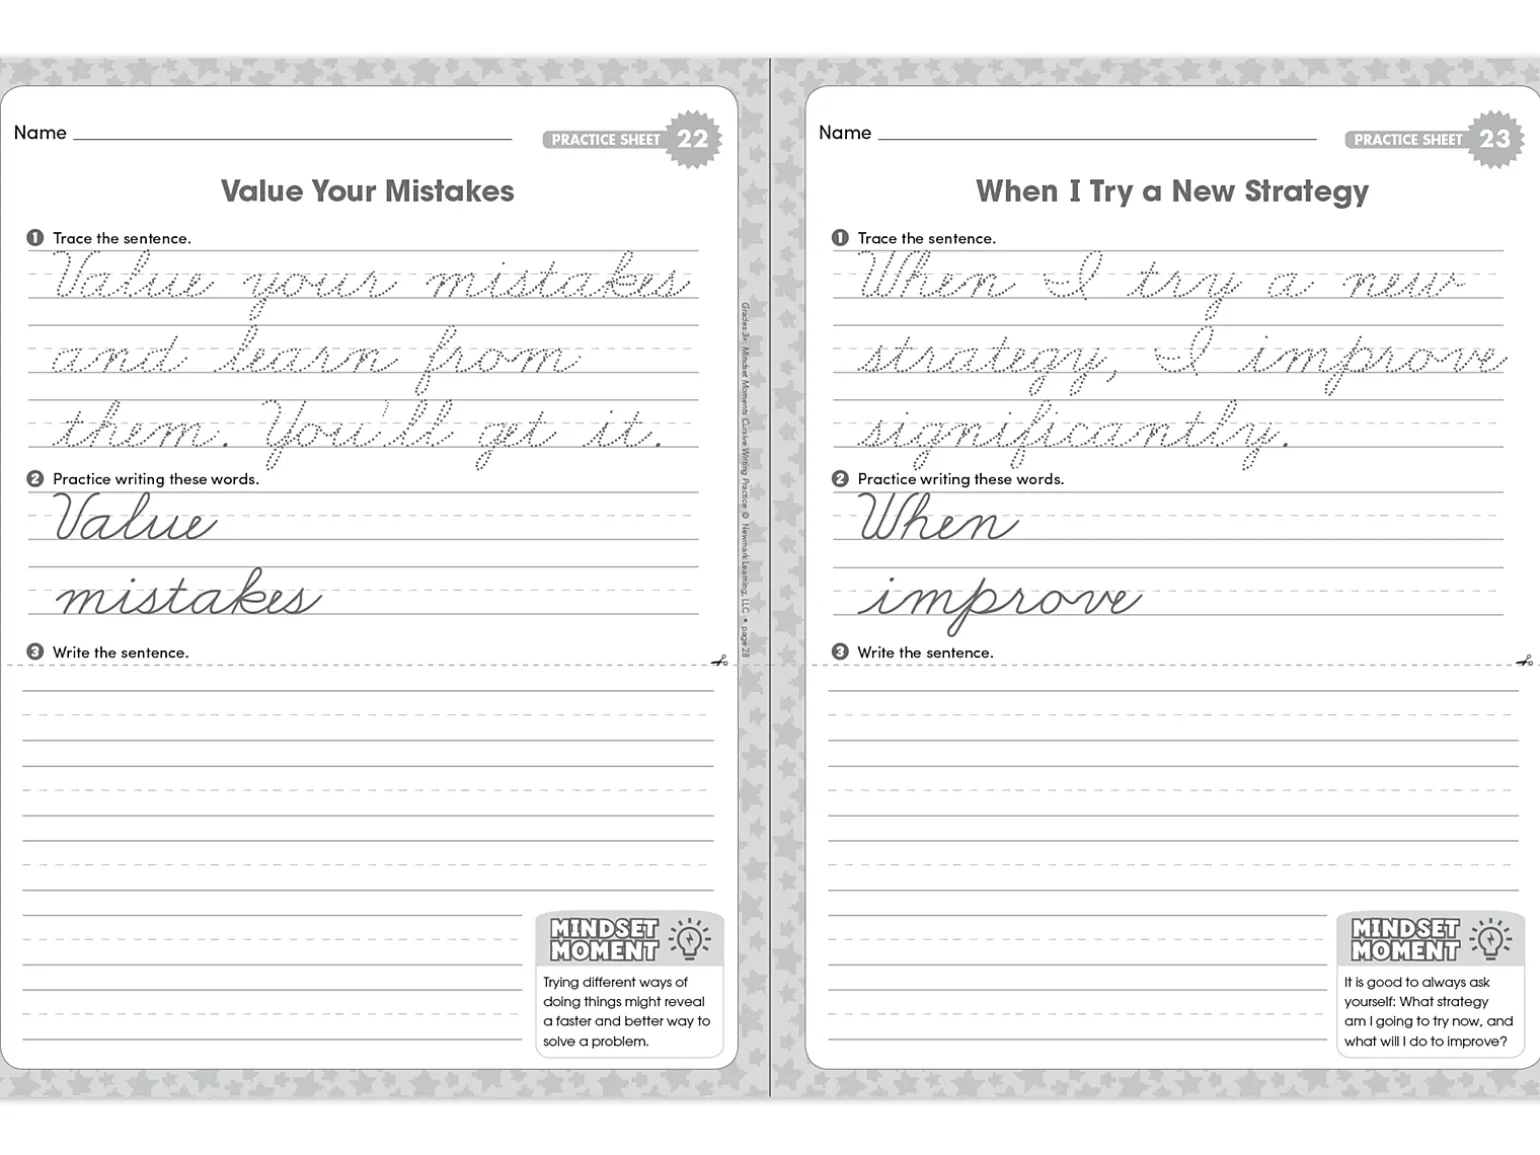 Name
PRACTICE SHEET 22
Value Your Mistakes
1 Trace the sentence.
Value your mistakes
and learn from
them. You'll get it.
2 Practice writing these words.
Value
mistakes
3 Write the sentence.
MINDSET
MOMENT
Trying different ways of
doing things might reveal
a faster and better way to
solve a problem.
Grades 3+: Mindset Moments Cursive Writing Practice © Newmark Learning, LLC • page 28
Name
PRACTICE SHEET 23
When I Try a New Strategy
1 Trace the sentence.
When I try a new
strategy, I improve
significantly.
2 Practice writing these words.
When
improve
3 Write the sentence.
MINDSET
MOMENT
It is good to always ask
yourself: What strategy
am I going to try now, and
what will I do to improve?